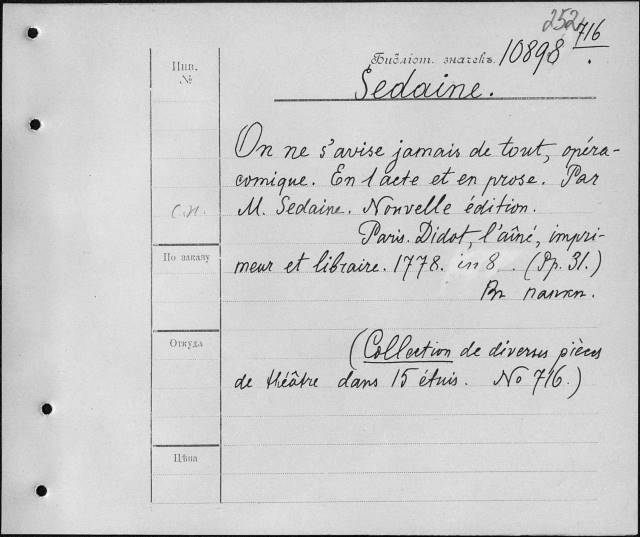 252
716
Библіот. значекъ. 10898.
Инв.
№
Sedaine.
On ne s'avise jamais de tout, opéra-
comique. En 1 acte et en prose. Par
M. Sedaine. Nouvelle édition.
С.П.
Paris. Didot, l'aîné, impri-
По заказу
meur et libraire. 1778. in 8. (Pp. 31.)
Въ папкѣ.
Откуда
(Collection de diverses pièces
de théâtre dans 15 étuis. No 716.)
Цѣна